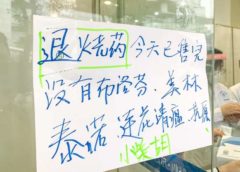 退烧药 今天已售完
没有布洛芬、美林
泰诺 莲花清瘟 抗原
小柴胡